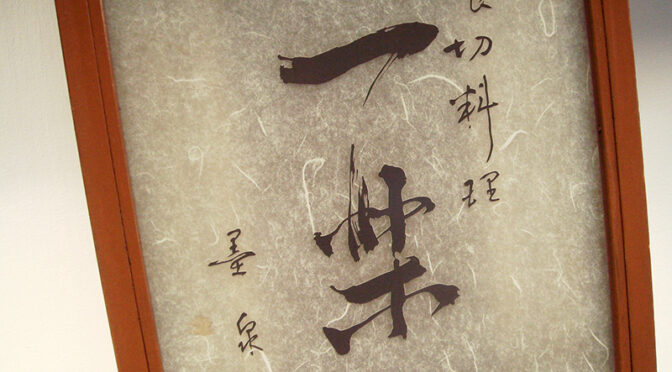 切料理
一楽
墨泉